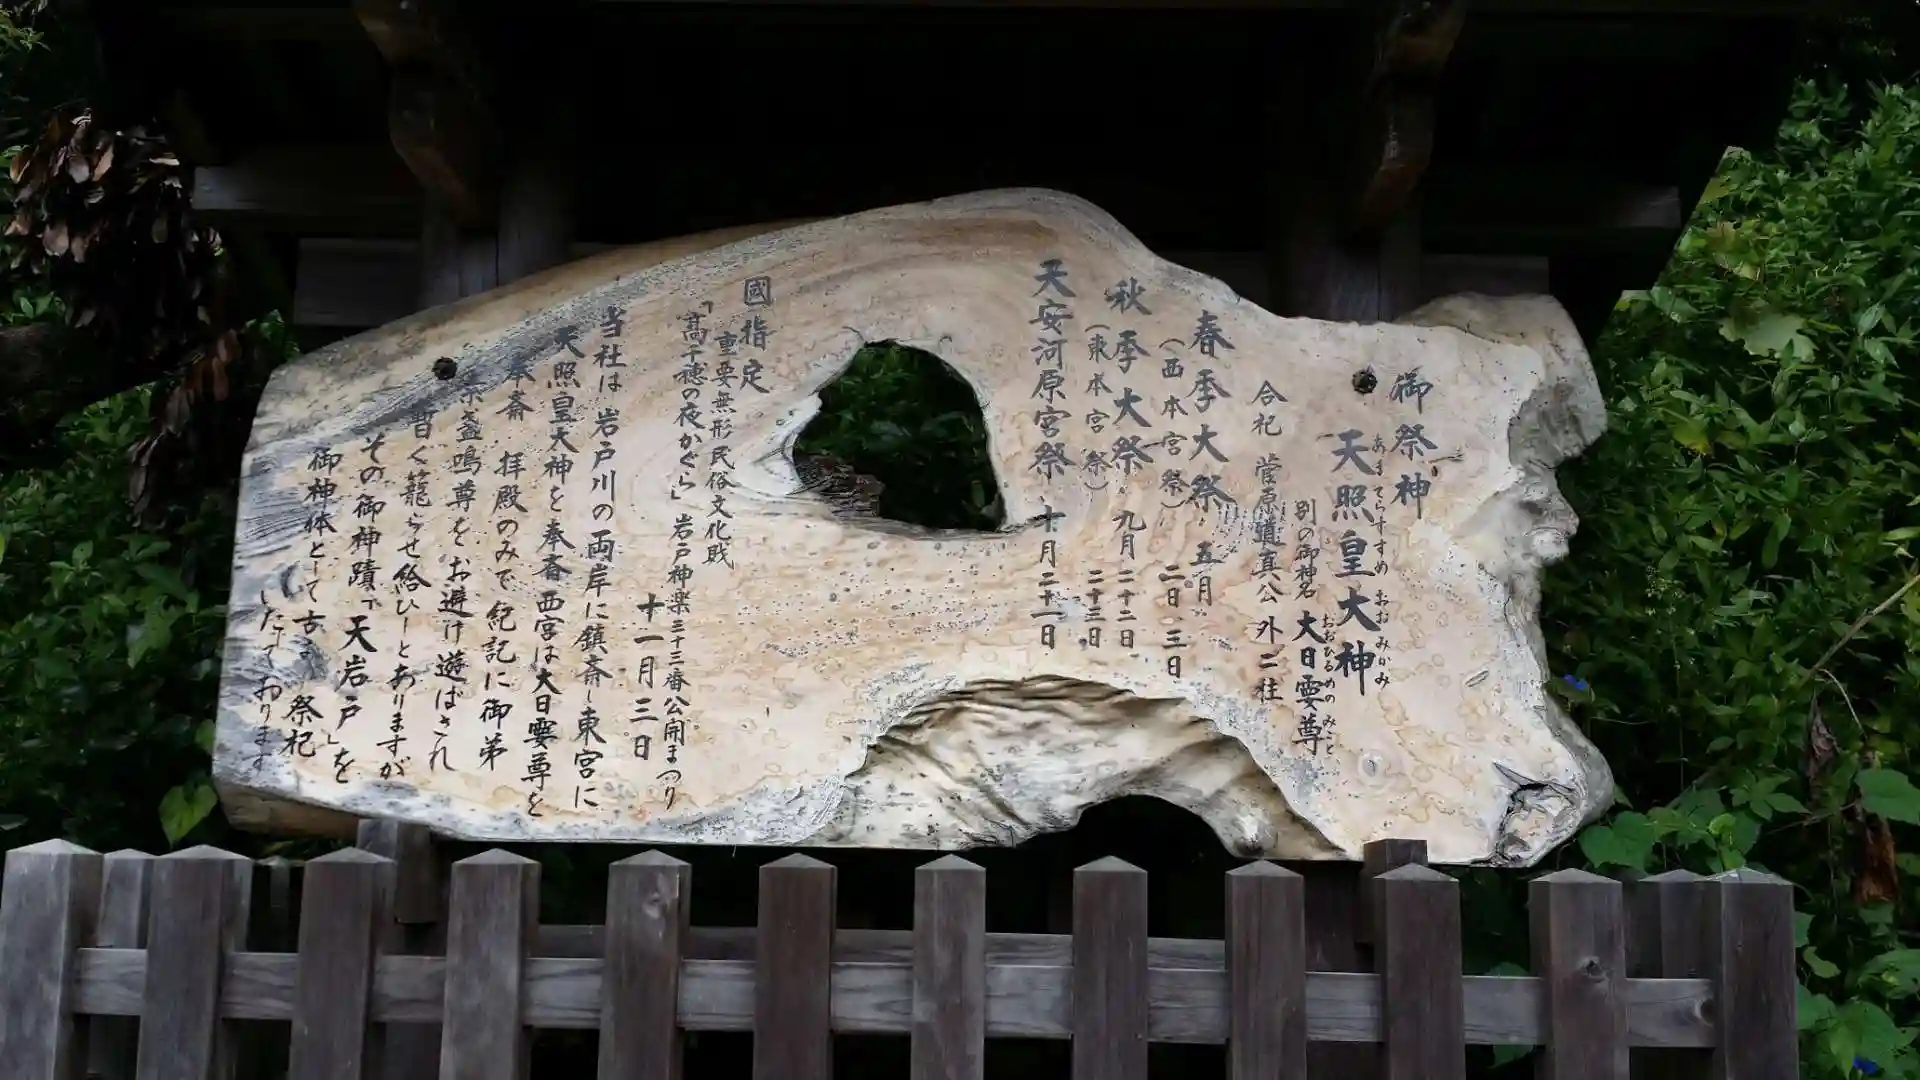 御祭神
あまてらすすめおおみかみ
天照皇大神
別の御神名 大日霎尊
おおひるめのみこと
合祀 菅原道真公 外二柱
春季大祭 五月 二日、三日
（西本宮祭）
秋季大祭 九月 二十二日 二十三日
（東本宮祭）
天安河原宮祭 十月二十一日
國指定
重要無形民俗文化財
「高千穂の夜かぐら」岩戸神楽三十三番公開まつり
十一月三日
当社は岩戸川の両岸に鎮斎し東宮に
天照皇大神を奉斎西宮は大日霎尊を
奉斎 拝殿のみで紀記に御弟
素盞鳴尊をお避け遊ばされ
暫く籠らせ給ひしとありますが
その御神蹟で「天岩戸」を
御神体として古 祭祀
いたしております